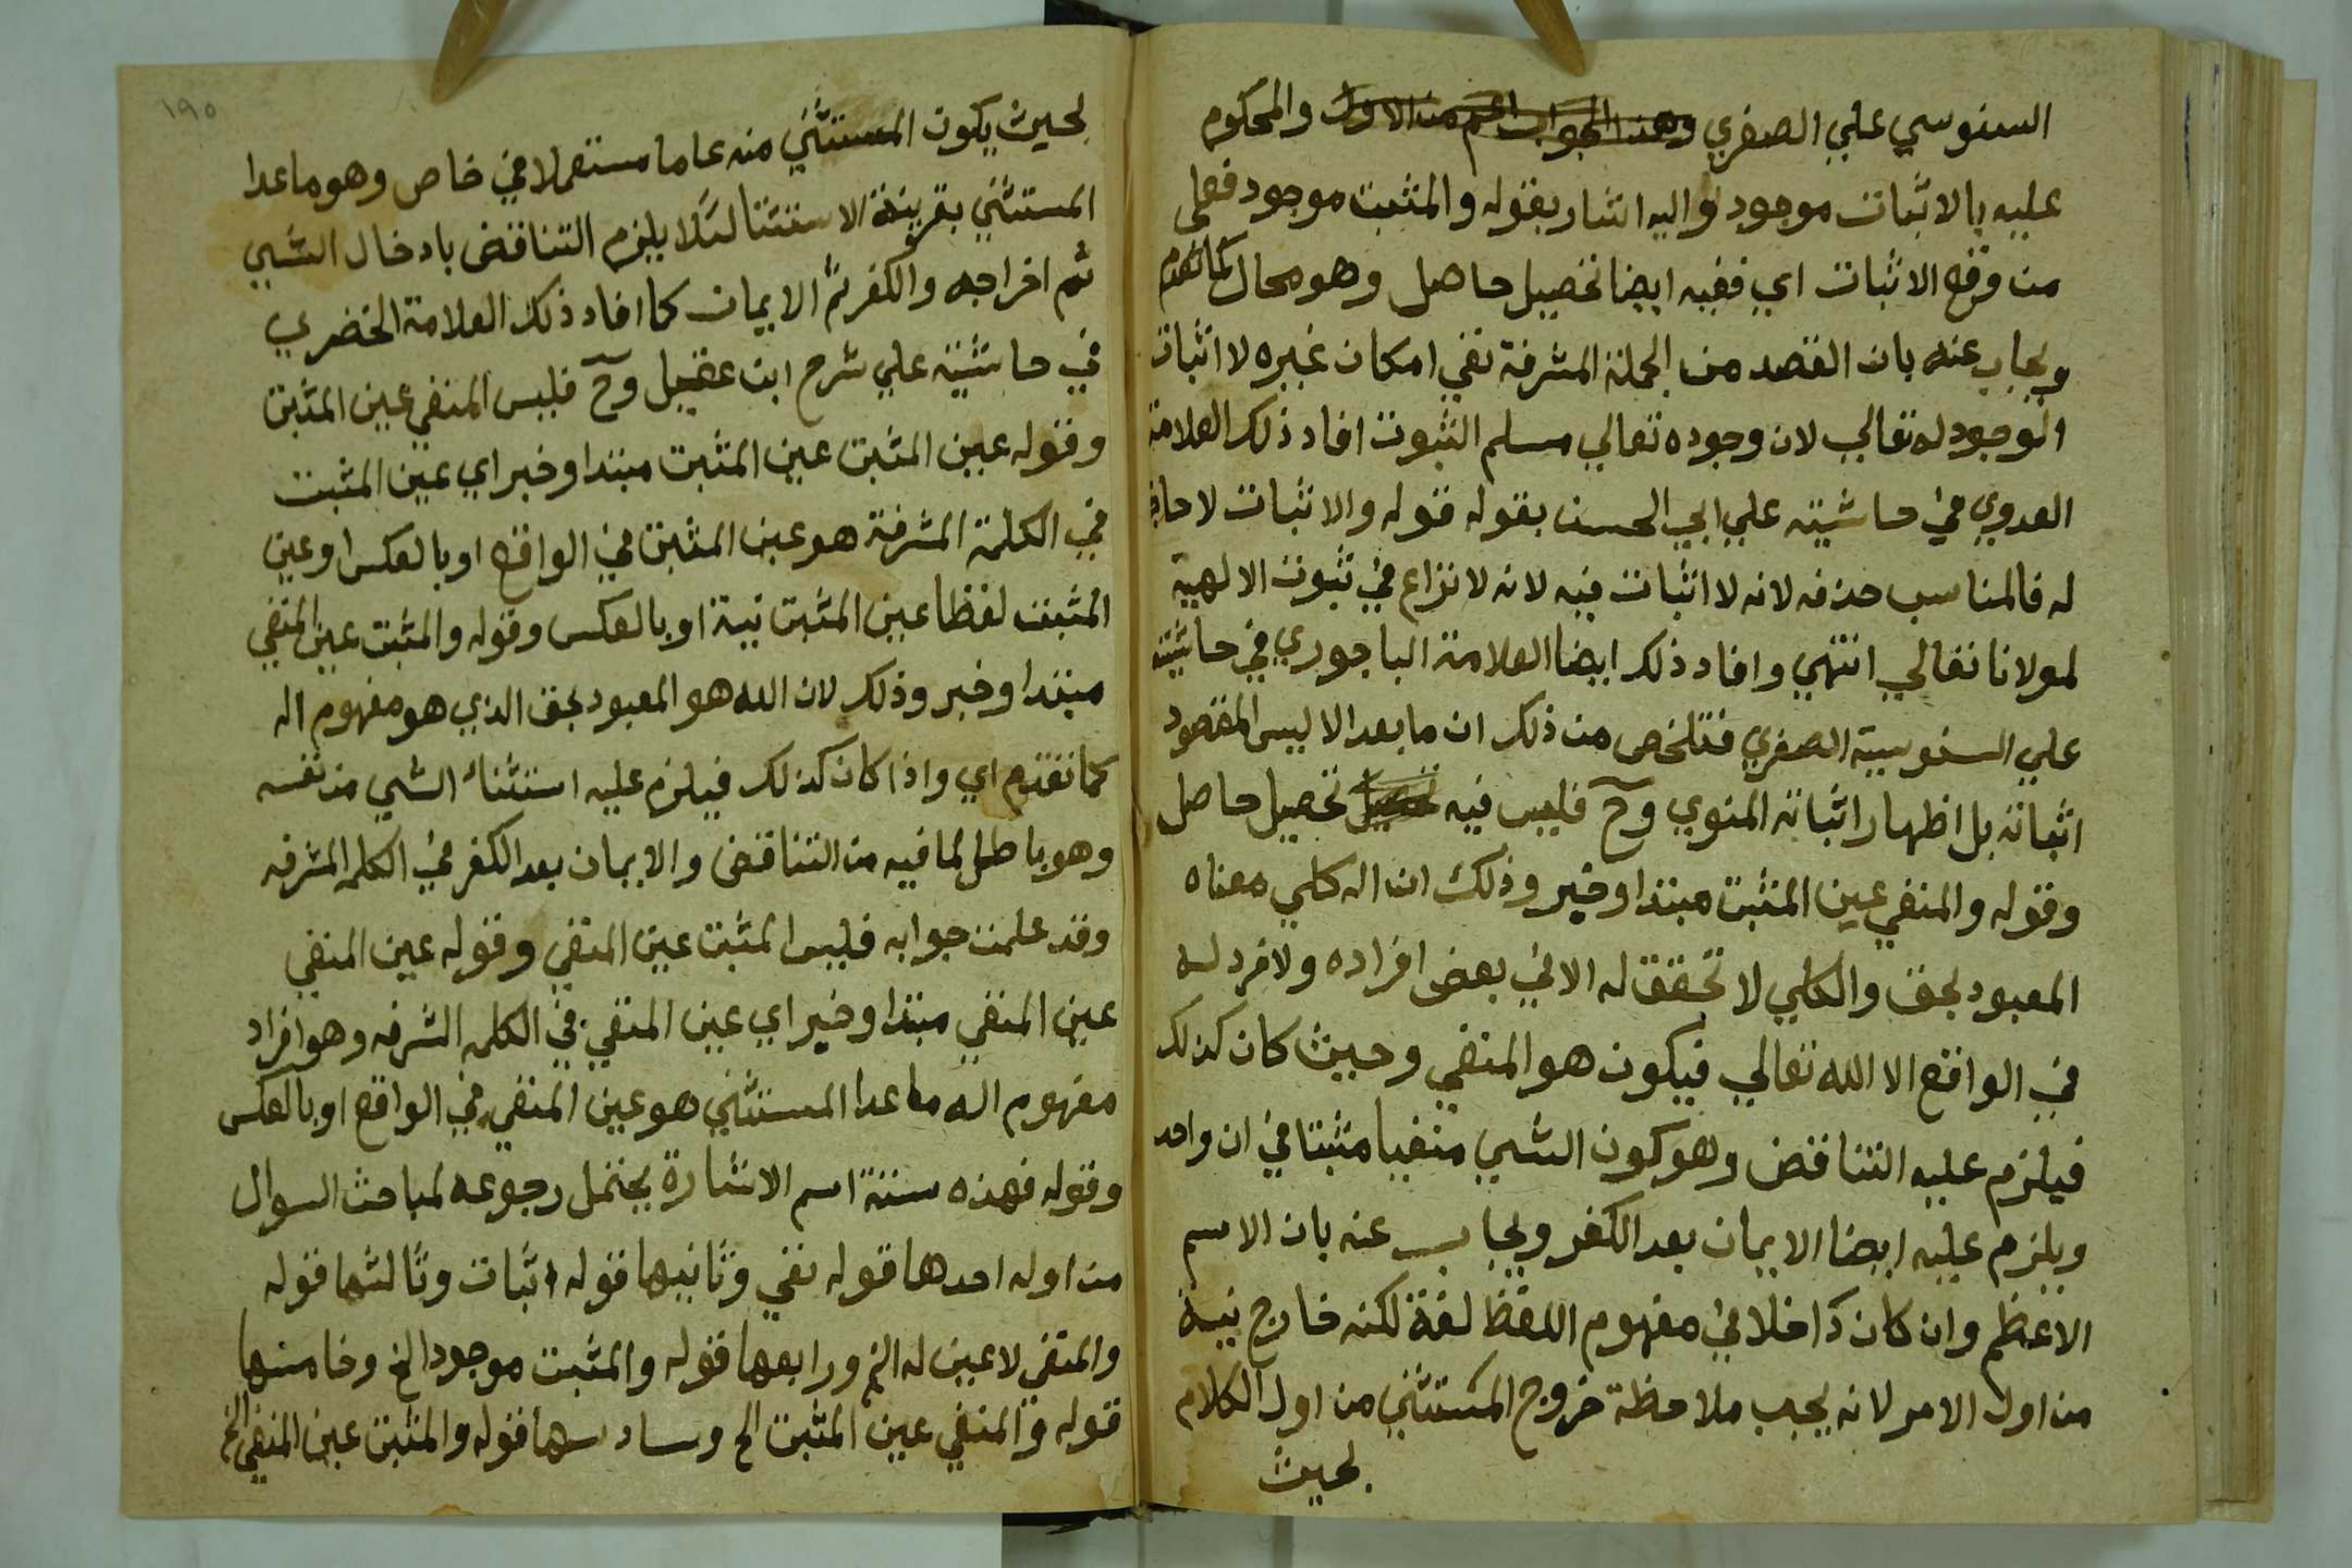 السنوسي علي الصغري وهذا الجواب اعم من الاول والمحكوم
عليه بالاثبات موجود واليه اشار بقوله والمثبت موجود فعلى
من وقع الاثبات اي ففيه ايضا تحصيل حاصل وهو محال كما تقدم
ويجاب عنه بان القصد من الجملة المشرفة نفي امكان غيره لا اثبات
الوجود له تعالي لان وجوده تعالي مسلم الثبوت افاد ذلك العلامة
العدوي في حاشيته علي ابي الحسن بقوله قوله والاثبات لا حاجة
له فالمناسب حذفه لانه لا اثبات فيه لانه لا نزاع في ثبوت الالهية
لمولانا تعالي انتهي وافاد ذلك ايضا العلامة الباجوري في حاشيته
علي السنوسية الصغري فتلخص من ذلك ان ما بعد الا ليس المقصود
اثباته بل اظهار اثباته المنوي وح فليس فيه تحصيل حاصل
وقوله والمنفي عين المثبت مبتدا وخبر وذلك ان اله كلي معناه
المعبود بحق والكلي لا تحقق له الا في بعض افراده ولا فرد له
في الواقع الا الله تعالي فيكون هو المنفي وحيث كان كذلك
فيلزم عليه التناقض وهو كون الشيي منفيا مثبتا في ان واحد
ويلزم عليه ايضا الايمان بعد الكفر ويجاب عنه بان الاسم
الاعظم وان كان داخلا في مفهوم اللفظ لغة لكنه خارج نية
من اول الامر لانه يجب ملاحظة خروج المستثني من اول الكلام
بحيث
١٩٥
بحيث يكون المستثني منه عاما مستعملا في خاص وهو ما عدا
المستثني بقرينة الاستثنا لئلا يلزم التناقض بادخال الشيي
ثم اخراجه والكفر ثم الايمان كما افاد ذلك العلامة الخضري
في حاشيته علي شرح ابن عقيل وح فليس المنفي عين المثبت
وقوله عين المثبت عين المثبت مبتدا وخبر اي عين المثبت
في الكلمة المشرفة هو عين المثبت في الواقع او بالعكس او عين
المثبت لفظا عين المثبت نية او بالعكس وقوله والمثبت عين المنفي
مبتدا وخبر وذلك لان الله هو المعبود بحق الذي هو مفهوم اله
كما تقدم اي واذا كان كذلك فيلزم عليه استثناء الشيي من نفسه
وهو باطل لما فيه من التناقض والايمان بعد الكفر في الكلمه المشرفه
وقد علمت جوابه فليس المثبت عين المنفي وقوله عين المنفي
عين المنفي مبتدا وخبر اي عين المنفي في الكلمه الشرفه وهو افراد
مفهوم اله ما عدا المستثني هو عين المنفي في الواقع او بالعكس
وقوله فهذه ستة اسم الاشارة يحتمل رجوعه لمباحث السوال
من اوله احدها قوله نفي وثانيها قوله اثبات وثالثها قوله
والمنفي لا عين له الخ ورابعها قوله والمثبت موجود الخ وخامسها
قوله والمنفي عين المثبت الخ وسادسها قوله والمثبت عين المنفي الخ